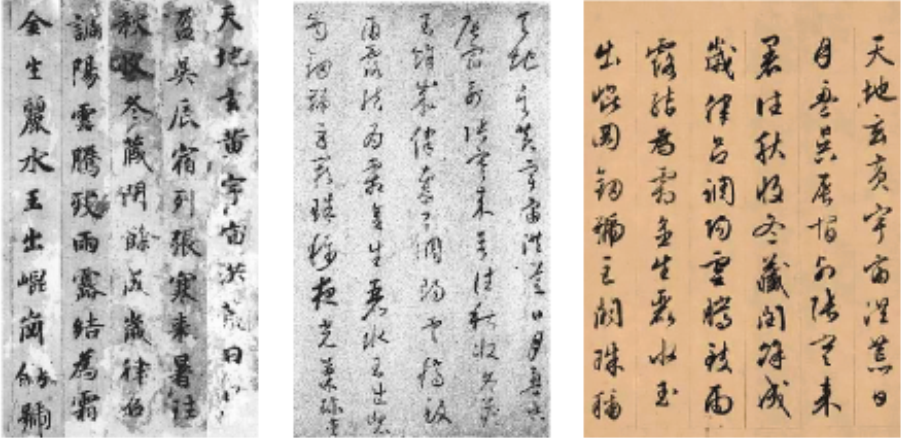 天地玄黃宇宙洪荒日月
盈昃辰宿列張寒來暑往
秋收冬藏閏餘成歲律呂
調陽雲騰致雨露結為霜
金生麗水玉出崐崗劍號
天地玄黃宇宙洪荒日月盈昃
辰宿列張寒來暑往秋收冬藏
閏餘成歲律呂調陽雲騰致
雨露結為霜金生麗水玉出崑
岡劍號巨闕珠稱夜光菓珍李
天地玄黃宇宙洪荒日
月盈昃辰宿列張寒來
暑往秋收冬藏閏餘成
歲律呂調陽雲騰致雨
露結為霜金生麗水玉
出崑岡劍號巨闕珠稱